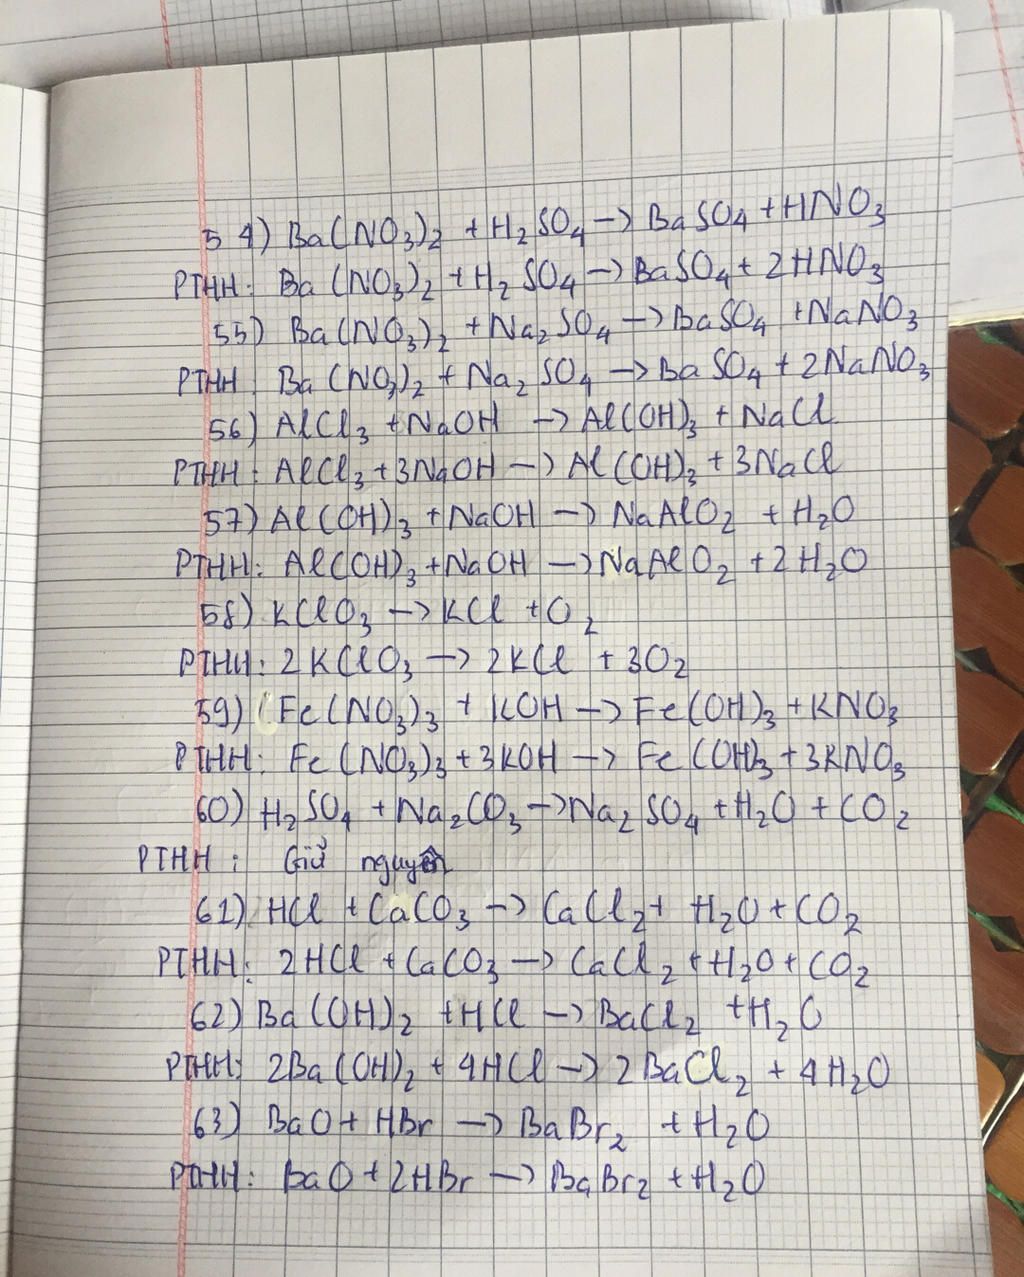 54) Ba(NO₃)₂ + H₂SO₄ → BaSO₄ + HNO₃
PTHH: Ba(NO₃)₂ + H₂SO₄ → BaSO₄ + 2HNO₃
55) Ba(NO₃)₂ + Na₂SO₄ → BaSO₄ + NaNO₃
PTHH: Ba(NO₃)₂ + Na₂SO₄ → BaSO₄ + 2NaNO₃
56) AlCl₃ + NaOH → Al(OH)₃ + NaCl
PTHH: AlCl₃ + 3NaOH → Al(OH)₃ + 3NaCl
57) Al(OH)₃ + NaOH → NaAlO₂ + H₂O
PTHH: Al(OH)₃ + NaOH → NaAlO₂ + 2H₂O
58) KClO₃ → KCl + O₂
PTHH: 2KClO₃ → 2KCl + 3O₂
59) (Fe(NO₃)₃ + KOH → Fe(OH)₃ + KNO₃
PTHH: Fe(NO₃)₃ + 3KOH → Fe(OH)₃ + 3KNO₃
60) H₂SO₄ + Na₂CO₃ → Na₂SO₄ + H₂O + CO₂
PTHH: Giữ nguyên
61) HCl + CaCO₃ → CaCl₂ + H₂O + CO₂
PTHH: 2HCl + CaCO₃ → CaCl₂ + H₂O + CO₂
62) Ba(OH)₂ + HCl → BaCl₂ + H₂O
PTHH: 2Ba(OH)₂ + 4HCl → 2BaCl₂ + 4H₂O
63) BaO + HBr → BaBr₂ + H₂O
PTHH: BaO + 2HBr → BaBr₂ + H₂O